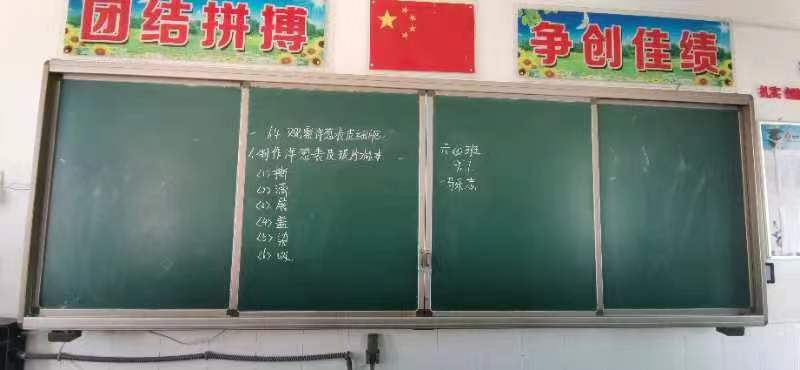 团结拼搏
争创佳绩
扎实
观察洋葱表皮细胞
1.制作洋葱表皮玻片标本
(1)撕
(2)滴
(3)展
(4)盖
(5)染
(6)吸
六四班